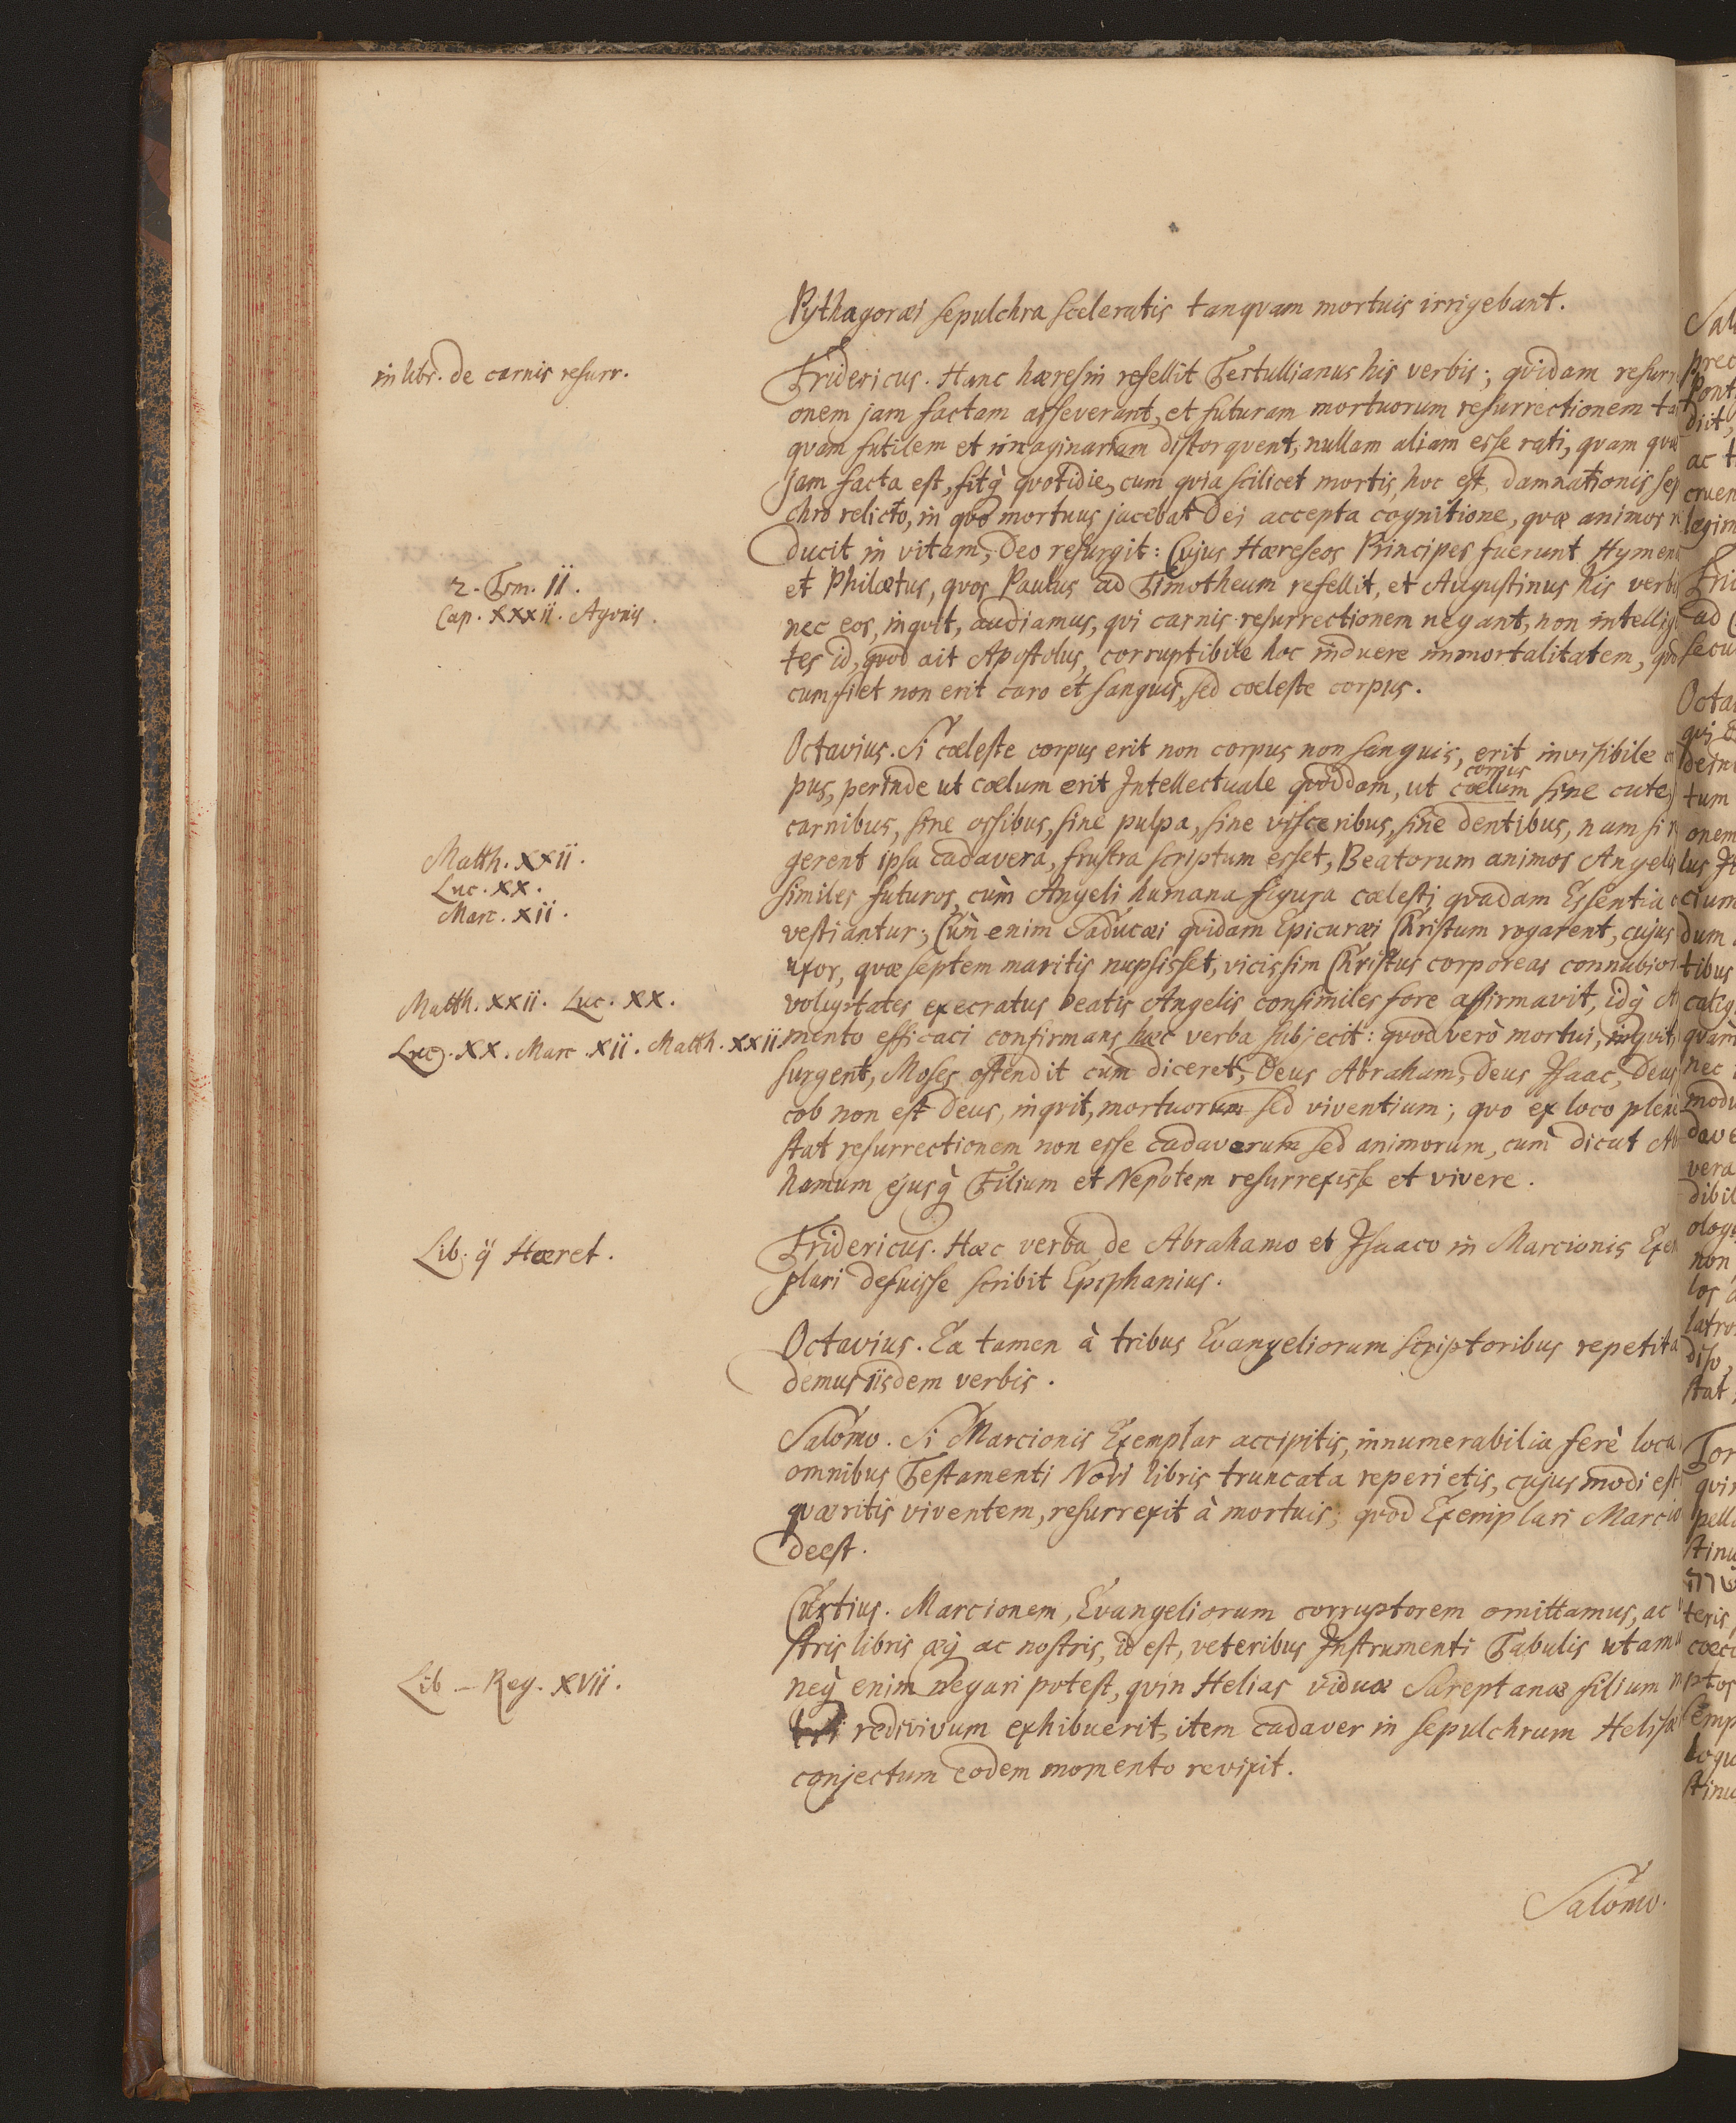 Pythagoræi sepulchra sceleratis tanqvam mortuis irrigebant.
in libr. de carnis resurr.
Fridericus. Hanc hæresin refellit Tertullianus his verbis; qvidam resurr
onem jam factam asseverant, et futuram mortuorum resurrectionem ta
qvam futilem et imaginariam distorqvent, nullam aliam esse rati, qvam qvæ
jam facta est, fitq̀ qvotidie, cum qvia scilicet mortis, hoc est, damnationis sep
chro relicto, in qvo mortuus jacebat Dei accepta cognitione, qvæ animos r
ducit in vitam, Deo resurgit: Cujus Hæreseos Principes fuerunt Hymen
2. Tim. II.
et Philætus, qvos Paulus ad Timotheum refellit, et Augustinus his verbi
Cap. XXXII. Agonis.
nec eos, inqvit, audiamus, qvi carnis resurrectionem negant, non intellig
tes id, qvod ait Apostolus, corruptibile hoc induere immortalitatem, qvo
cum fiet non erit caro et sanguis, sed cœleste corpus.
Octavius. Si cœleste corpus erit non corpus non sanguis, erit invisibile c
corpus
pus, perinde ut cœlum erit Intellectuale qvoddam, ut cœlum sine cute,
carnibus, sine ossibus, sine pulpa, sine visceribus, sine dentibus, nam si r
Matth. XXII.
gerent ipsa cadavera, frustra scriptum esset, Beatorum animos Angeli
Luc. XX.
similes futuros, cùm Angeli humana figura cœlesti qvadam Essentia c
Marc. XII.
vestiantur; Cùm enim Saducæi qvidam Epicuræi Christum rogarent, cujus
uxor, qvæ septem maritis nupsisset, vicissim Christus corporeas connubior
Matth. XXII. Luc. XX.
voluptates execratus beatis Angelis consimiles fore affirmavit, idq̀ A
Luc. XX. Marc. XII. Matth. XXII.
mento efficaci confirmans hæc verba subjecit: qvod verò mortui, inqvit,
surgent, Moses ostendit cùm diceret, Deus Abraham, Deus Isaac, Deus
cob non est Deus, inqvit, mortuorum sed viventium; qvo ex loco pleni
stat resurrectionem non esse cadaverum sed animorum, cum dicat Ab
hamum ejusq̀ Filium et Nepotem resurrexisse et vivere.
Lib. ÿ Hæret.
Fridericus. Hæc verba de Abrahamo et Isaaco in Marcionis Exem
plari defuisse scribit Epiphanius.
Octavius. Ea tamen à tribus Evangeliorum scriptoribus repetita
demus iisdem verbis.
Salomo. Si Marcionis Exemplar accipitis, innumerabilia ferè loca
omnibus Testamenti Novi libris truncata reperietis, cujus modi est
qværitis viventem, resurrexit à mortuis; qvod Exemplari Marcio
deest.
Curtius. Marcionem, Evangeliorum corruptorem omittamus, ac
stris libris æq̀ ac nostris, id est, veteribus Instrumenti Tabulis utam
Lib – Reg. XVII.
neq̀ enim negari potest, qvin Helias viduæ Sareptanæ filium m
redivivum exhibuerit, item cadaver in sepulchrum Helisæ
conjectum eodem momento revixit.
Salomo.